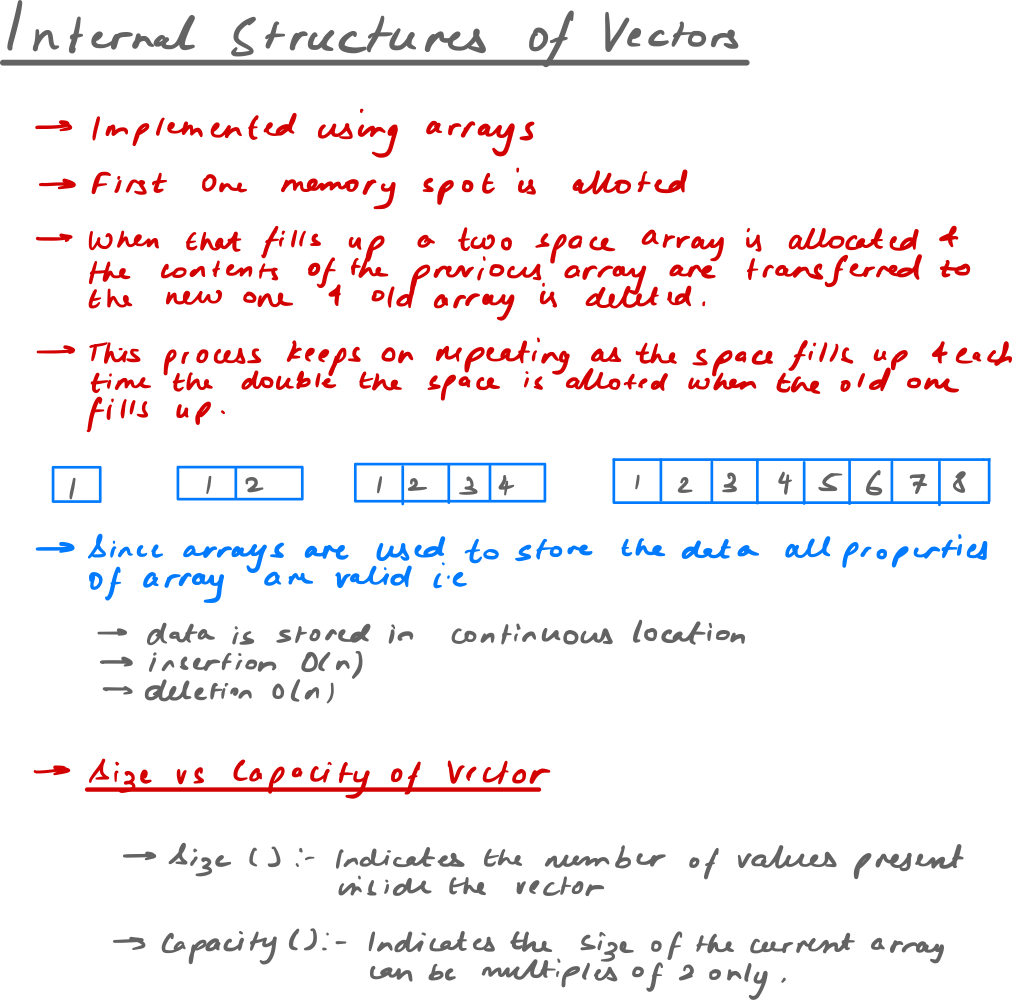 Internal Structures of Vectors
→ Implemented using arrays
→ First One memory spot is alloted
→ When that fills up a two space array is allocated &
the contents of the previous array are transferred to
the new one & old array is deleted.
→ This process keeps on repeating as the space fills up & each
time the double the space is alloted when the old one
fills up.
1 1 2 1 2 3 4 1 2 3 4 5 6 7 8
→ Since arrays are used to store the data all properties
of array are valid i.e
→ data is stored in continuous location
→ insertion O(n)
→ deletion O(n)
→ Size vs Capacity of Vector
→ Size () :- Indicates the number of values present
inside the vector
→ Capacity () :- Indicates the size of the current array
can be multiples of 2 only.